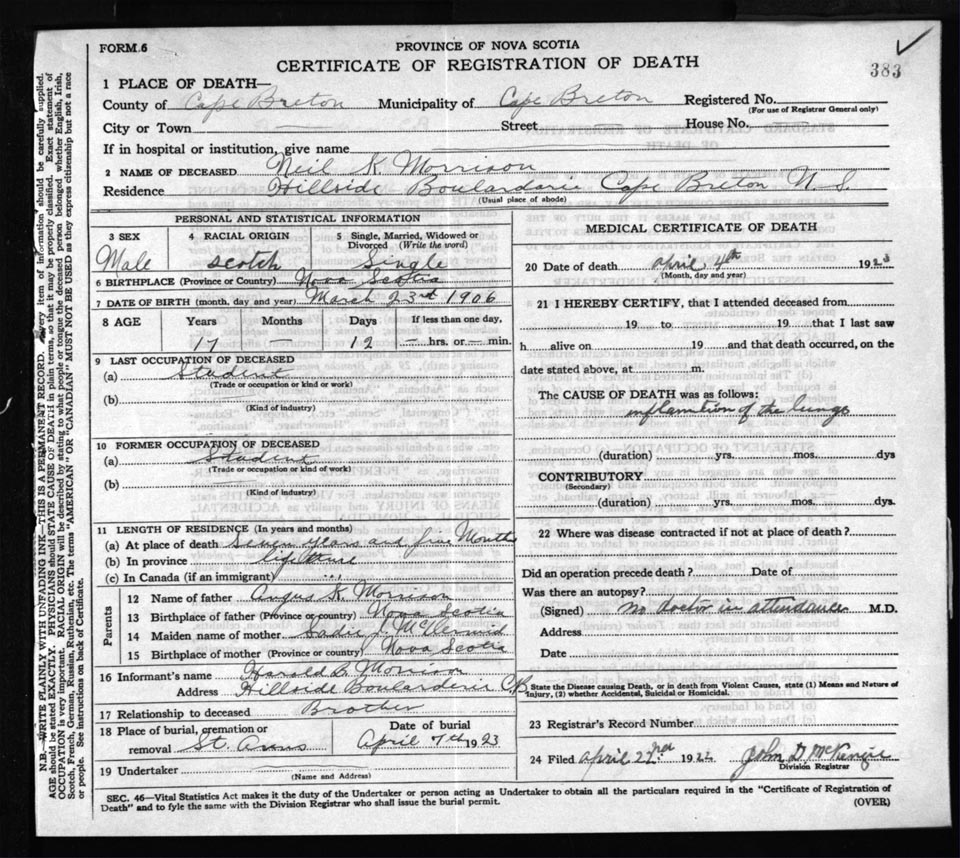 FORM 6
PROVINCE OF NOVA SCOTIA
CERTIFICATE OF REGISTRATION OF DEATH
383
1 PLACE OF DEATH—
County of Cape Breton Municipality of Cape Breton Registered No.
(For use of Registrar General only)
City or Town Street House No.
If in hospital or institution, give name
2 NAME OF DECEASED Neil K. Morrison
Residence Hillside Boulardarie Cape Breton N. S.
(Usual place of abode)
PERSONAL AND STATISTICAL INFORMATION
3 SEX
Male
4 RACIAL ORIGIN
scotch
5 Single, Married, Widowed or Divorced (Write the word)
Single
6 BIRTHPLACE (Province or Country) Nova Scotia
7 DATE OF BIRTH (month, day and year) March 23rd 1906
8 AGE
Years
17
Months
—
Days
12
If less than one day,
— hrs. or — min.
9 LAST OCCUPATION OF DECEASED
(a) Student
(Trade or occupation or kind or work)
(b)
(Kind of industry)
10 FORMER OCCUPATION OF DECEASED
(a) Student
(Trade or occupation or kind or work)
(b)
(Kind of industry)
11 LENGTH OF RESIDENCE (In years and months)
(a) At place of death Seven years and five Months
(b) In province life time
(c) In Canada (if an immigrant)
Parents
12 Name of father Angus K. Morrison
13 Birthplace of father (Province or country) Nova Scotia
14 Maiden name of mother McDermid
15 Birthplace of mother (Province or country) Nova Scotia
16 Informant's name Harold Morrison
Address Hillside Boularderie C.B.
17 Relationship to deceased Brother
18 Place of burial, cremation or removal St. Anns
Date of burial
April 7th 1923
19 Undertaker
(Name and Address)
MEDICAL CERTIFICATE OF DEATH
20 Date of death april 4th 1923
(Month, day and year)
21 I HEREBY CERTIFY, that I attended deceased from
19 to 19 that I last saw
h alive on 19 and that death occurred, on the
date stated above, at m.
The CAUSE OF DEATH was as follows:
inflamation of the lungs
(duration) yrs. mos. dys
CONTRIBUTORY
(Secondary)
(duration) yrs. mos. dys.
22 Where was disease contracted if not at place of death?
Did an operation precede death? Date of
Was there an autopsy?
(Signed) no doctor in attendance M.D.
Address
Date
State the Disease causing Death, or in death from Violent Causes, state (1) Means and Nature of
Injury, (2) whether Accidental, Suicidal or Homicidal.
23 Registrar's Record Number
24 Filed April 22nd 1922 John D. McKenzie
Division Registrar
SEC. 46—Vital Statistics Act makes it the duty of the Undertaker or person acting as Undertaker to obtain all the particulars required in the "Certificate of Registration of
Death" and to fyle the same with the Division Registrar who shall issue the burial permit.
(OVER)
N.B.—WRITE PLAINLY WITH UNFADING INK—THIS IS A PERMANENT RECORD. Every item of information should be carefully supplied.
AGE should be stated EXACTLY. PHYSICIANS should STATE CAUSE OF DEATH in plain terms, so that it may be properly classified. Exact statement of
OCCUPATION is very important. RACIAL ORIGIN will be described by stating to what people or tongue the deceased person belonged, whether English, Irish,
Scotch, French, German, Russian, Ruthenian, etc. The terms "AMERICAN" OR "CANADIAN" MUST NOT BE USED as they express citizenship but not a race
or people. See instructions on back of Certificate.